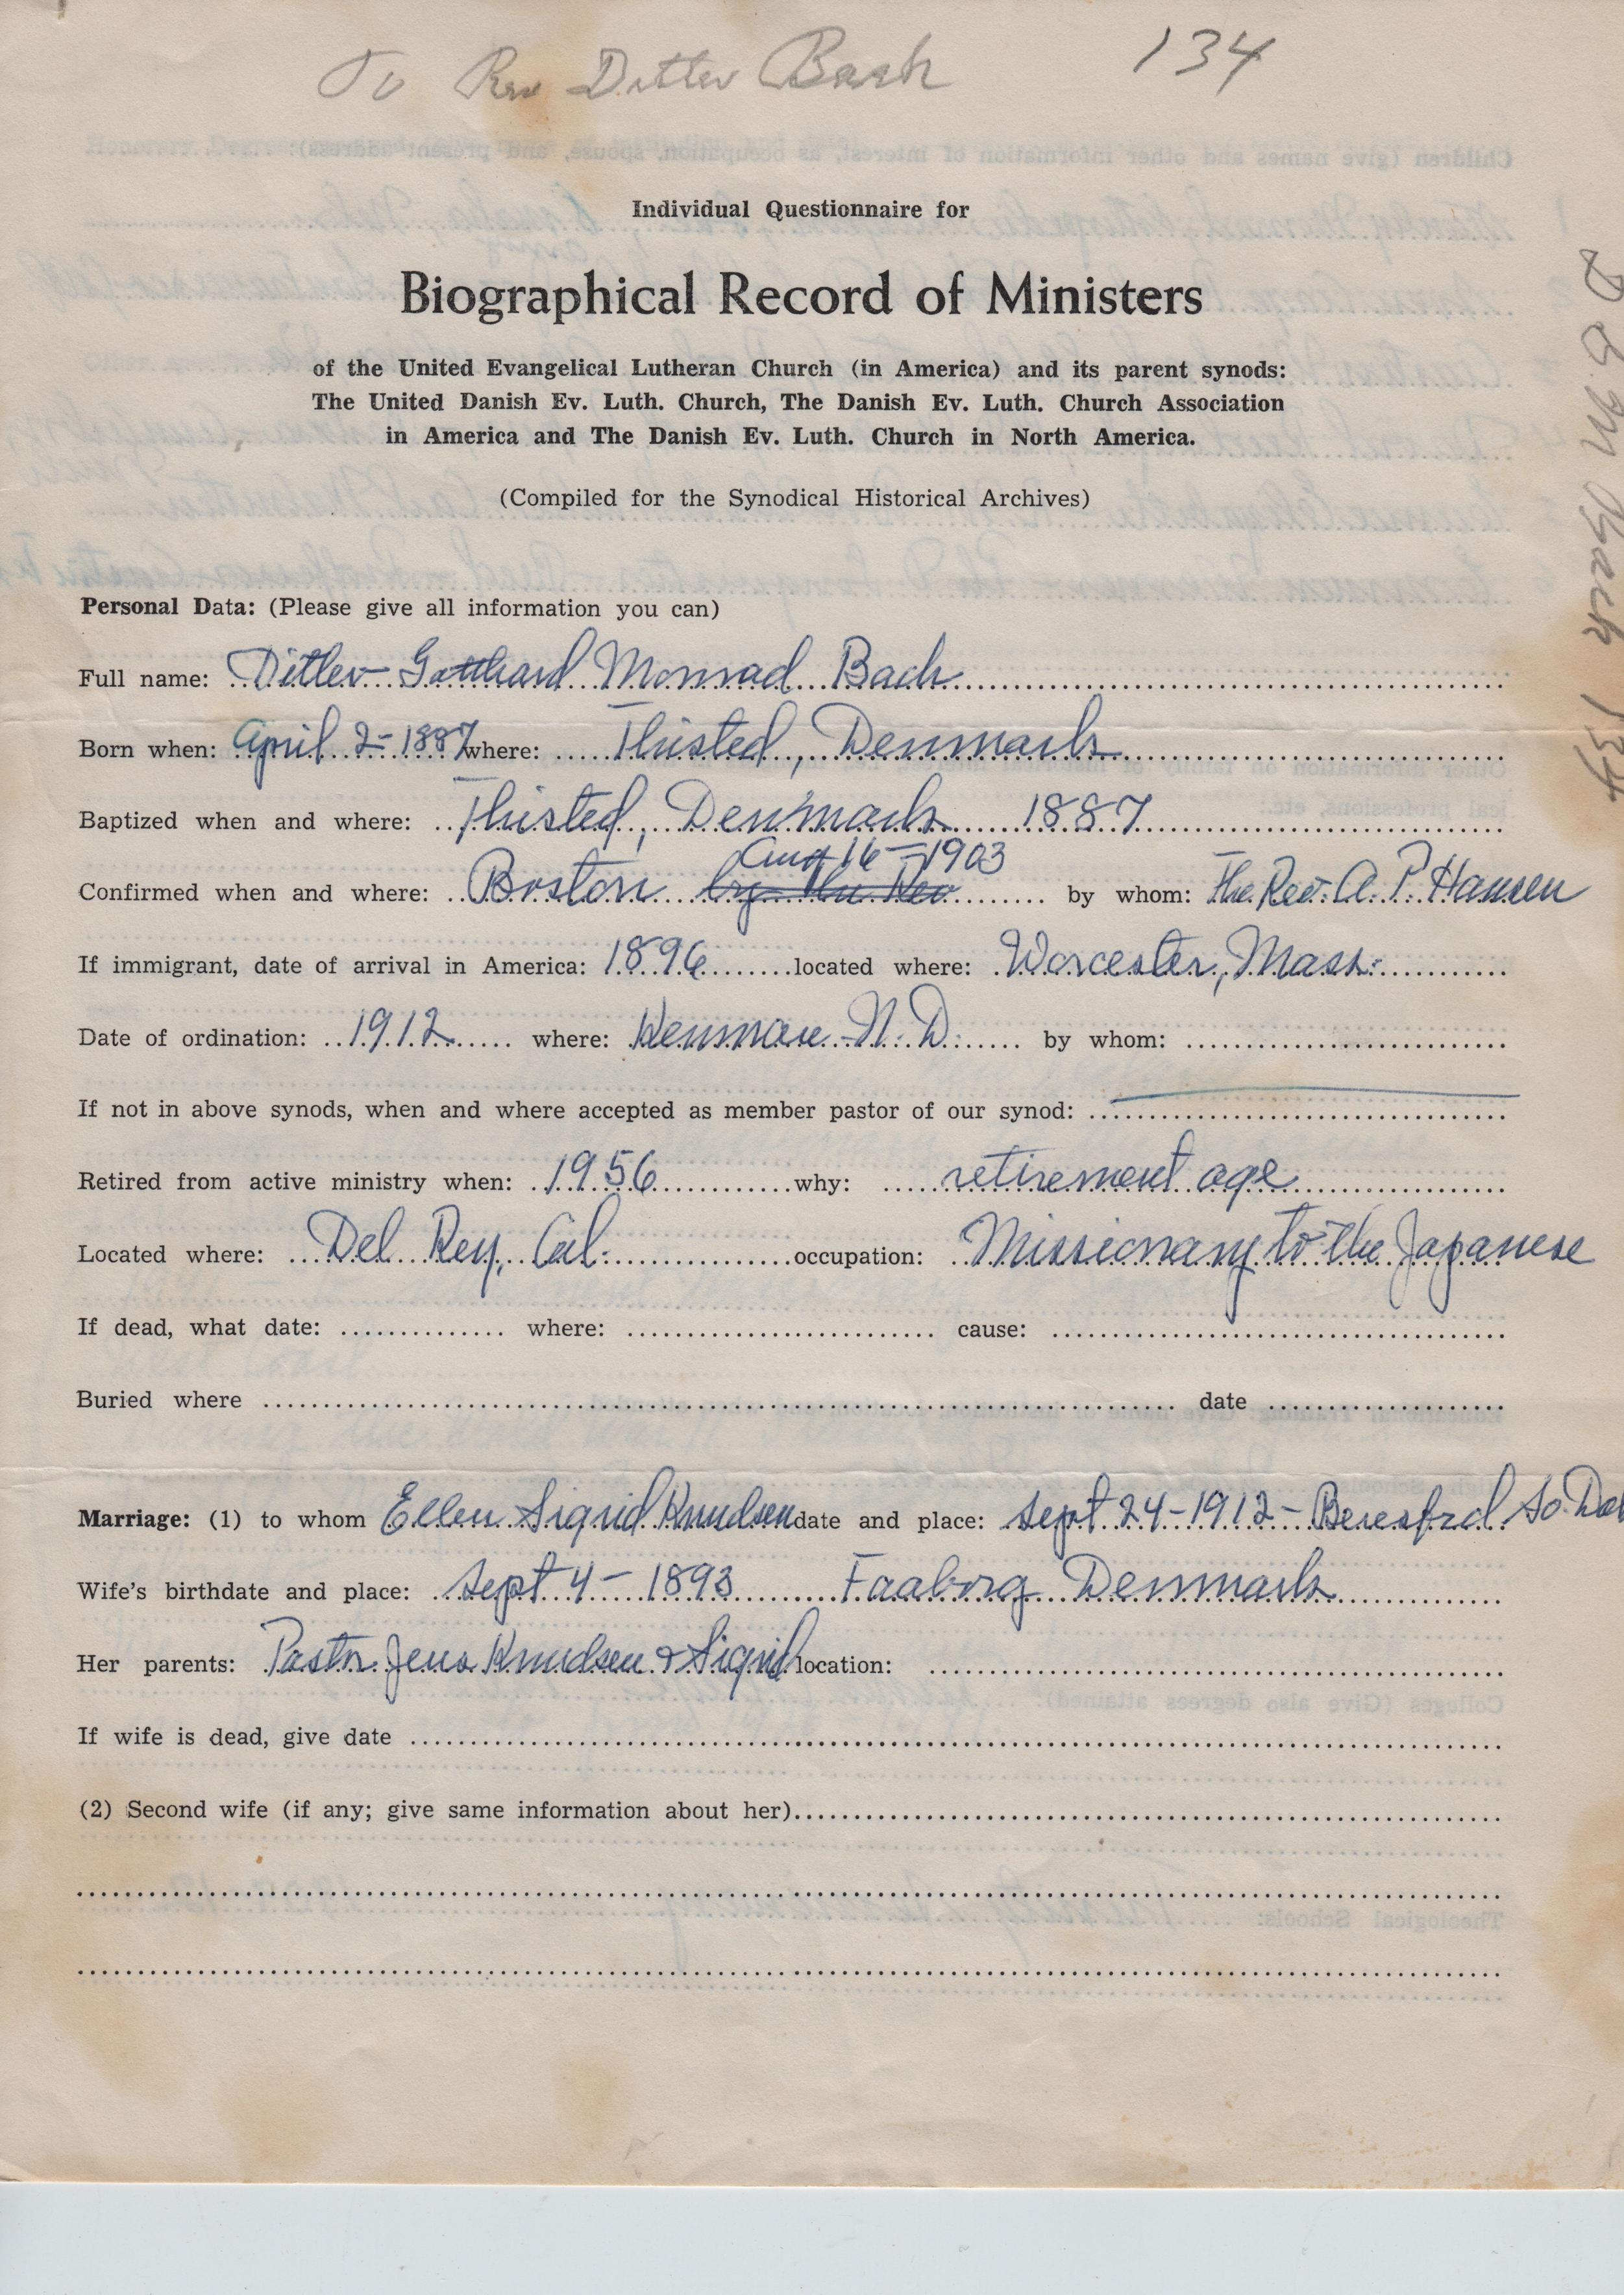 To Rev Ditlev Bach 134
Individual Questionnaire for
Biographical Record of Ministers
of the United Evangelical Lutheran Church (in America) and its parent synods:
The United Danish Ev. Luth. Church, The Danish Ev. Luth. Church Association
in America and The Danish Ev. Luth. Church in North America.
(Compiled for the Synodical Historical Archives)
Personal Data: (Please give all information you can)
Full name: Ditlev Gotthard Monrad Bach
Born when: April 2 - 1887 where: Thisted, Denmark
Baptized when and where: Thisted, Denmark 1887
Aug 16 - 1903
Confirmed when and where: Boston by the Rev by whom: The Rev. A. P. Hansen
If immigrant, date of arrival in America: 1896 located where: Worcester, Mass.
Date of ordination: 1912 where: Kenmare N. D. by whom:
If not in above synods, when and where accepted as member pastor of our synod:
Retired from active ministry when: 1956 why: retirement age
Located where: Del Rey, Cal. occupation: Missionary to the Japanese
If dead, what date: where: cause:
Buried where date
Marriage: (1) to whom Ellen Sigrid Knudsen date and place: Sept 24 - 1912 - Beresford So. Dak
Wife's birthdate and place: Sept 4 - 1893 Faaborg Denmark
Her parents: Pastor Jens Knudsen & Sigrid location:
If wife is dead, give date
(2) Second wife (if any; give same information about her)
D G M Bach 134